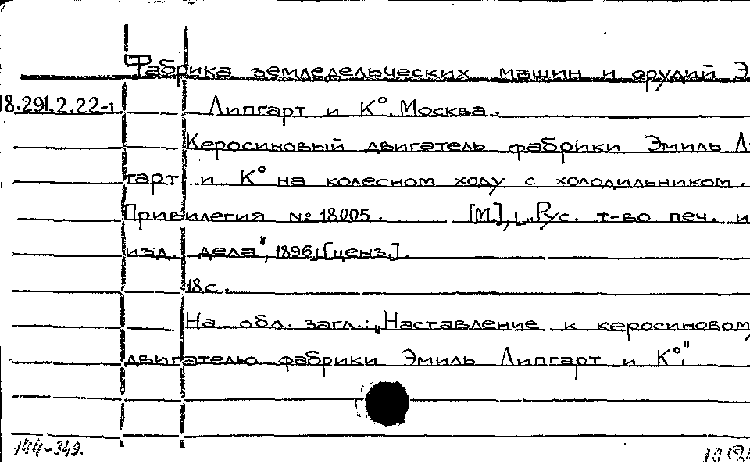 Фабрика земледельческих машин и орудий Э
18.291.2.22-1 Липгарт и К°. Москва.
Керосиновый двигатель фабрики Эмиль Ли
гарт и К° на колесном ходу с холодильником.
Привилегия № 18005. [М], „Рус. т-во печ. и
изд. дела", 1896, [ценз.].
18с.
На обл. загл.: „Наставление к керосиновому
двигателю фабрики Эмиль Липгарт и К°."
144-349.